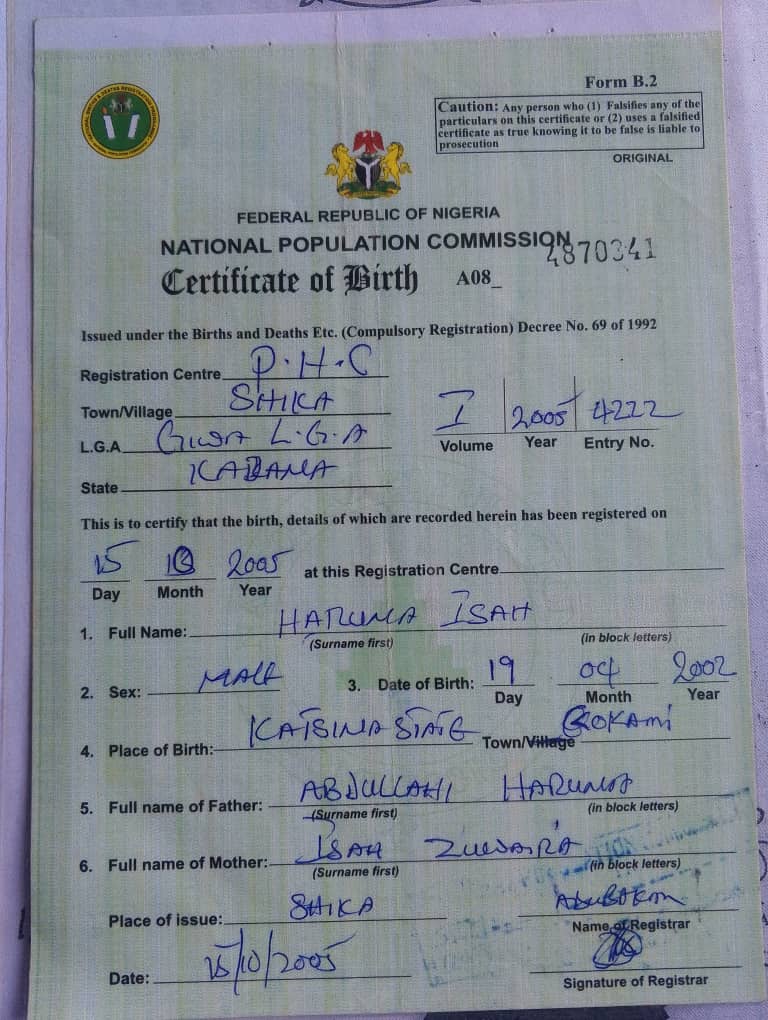 Form B.2
Caution: Any person who (1) Falsifies any of the
particulars on this certificate or (2) uses a falsified
certificate as true knowing it to be false is liable to
prosecution
ORIGINAL
FEDERAL REPUBLIC OF NIGERIA
NATIONAL POPULATION COMMISSION
4870341
Certificate of Birth A08_
Issued under the Births and Deaths Etc. (Compulsory Registration) Decree No. 69 of 1992
Registration Centre P.H.C
Town/Village SHIKA
I 2005 4222
L.G.A GIWA L.G.A
Volume Year Entry No.
State KADANA
This is to certify that the birth, details of which are recorded herein has been registered on
15 10 2005 at this Registration Centre
Day Month Year
1. Full Name: HARUNA ISAH
(Surname first) (in block letters)
2. Sex: MALE 3. Date of Birth: 19 04 2002
Day Month Year
4. Place of Birth: KATSINA STATE Town/Village GOKAMI
5. Full name of Father: ABDULLAHI HARUNA
(Surname first) (in block letters)
6. Full name of Mother: ISAH ZUWAIRA
(Surname first) (in block letters)
Place of issue: SHIKA
Name of Registrar
Date: 15/10/2005
Signature of Registrar